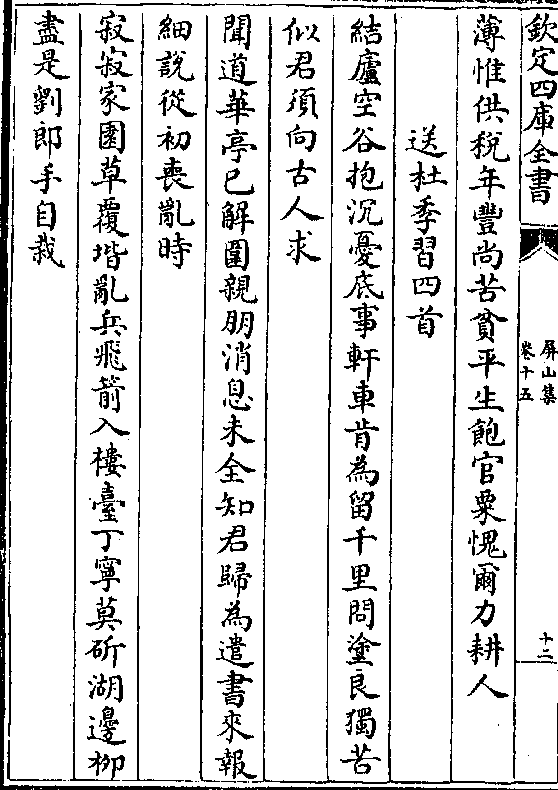 欽定四庫全書
屏山集
卷十五
十二
薄惟供稅年豐尚苦貧平生飽官粟愧爾力耕人
送杜季習四首
結廬空谷抱沉憂底事軒車肯為留千里問塗良獨苦
似君須向古人求
聞道華亭已解圍親朋消息未全知君歸為遣書來報
細說從初喪亂時
寂寂家園草覆堦亂兵飛箭入樓臺丁寧莫斫湖邊栁
盡是劉郎手自栽